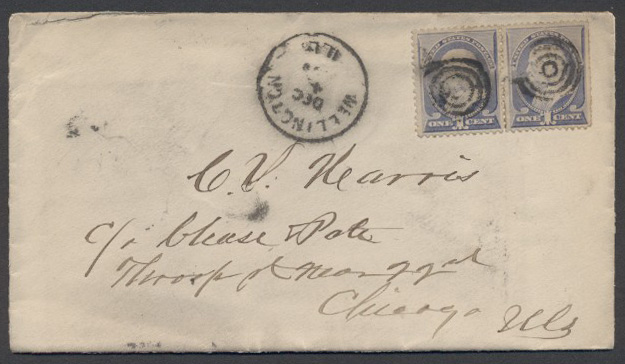 WELLINGTON
DEC
4
ILLS.
UNITED STATES POSTAGE
UNITED STATES POSTAGE
ONE CENT
ONE CENT
C. V. Harris
c/o Chase & Pate
Throop St near 22nd
Chicago Ills